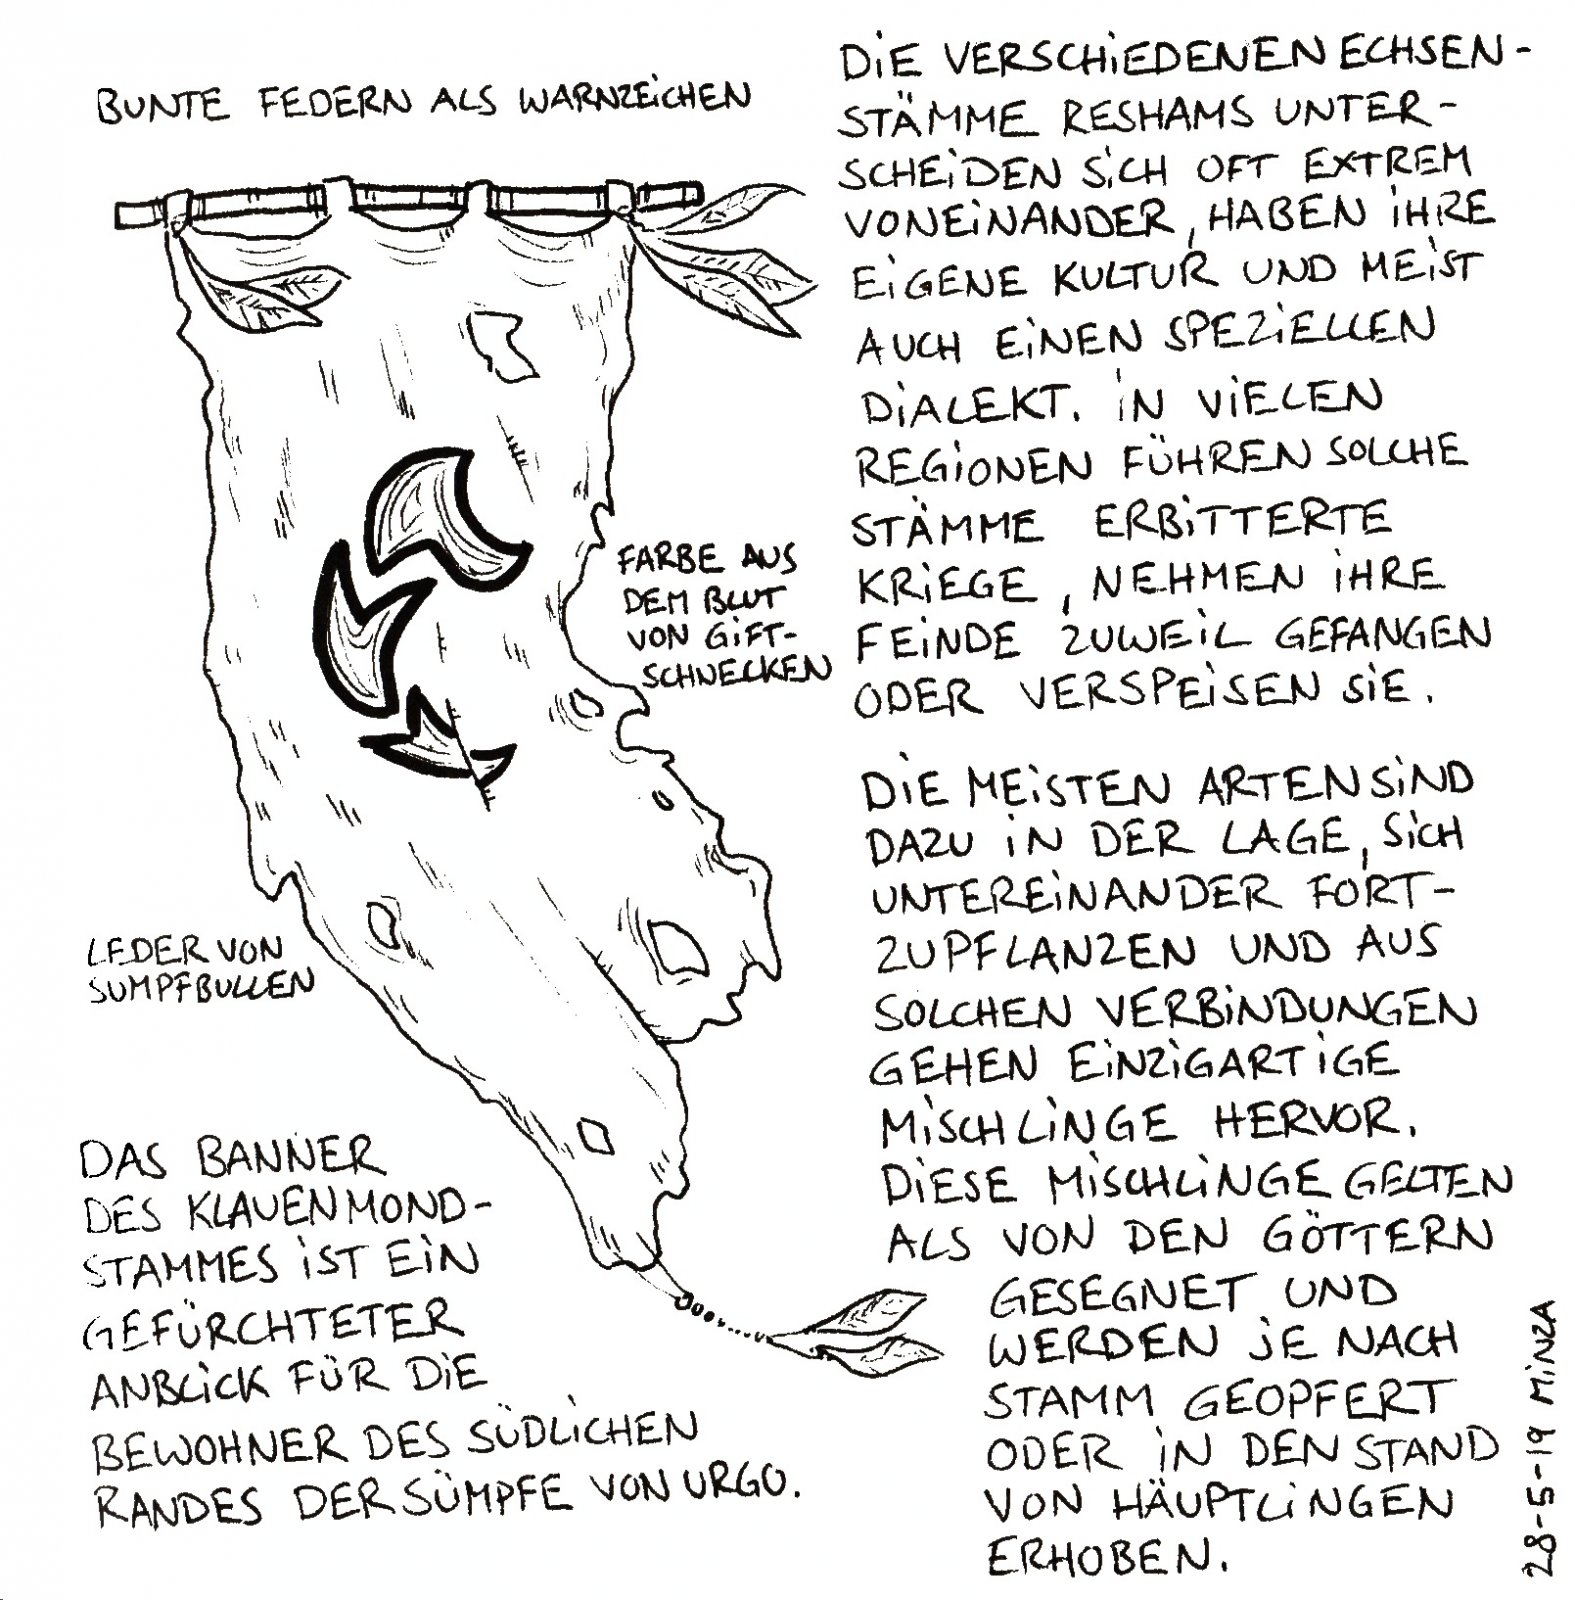 BUNTE FEDERN ALS WARNZEICHEN
DIE VERSCHIEDENEN ECHSEN-
STÄMME RESHAMS UNTER-
SCHEIDEN SICH OFT EXTREM
VONEINANDER, HABEN IHRE
EIGENE KULTUR UND MEIST
AUCH EINEN SPEZIELLEN
DIALEKT. IN VIELEN
REGIONEN FÜHREN SOLCHE
STÄMME ERBITTERTE
KRIEGE, NEHMEN IHRE
FEINDE ZUWEIL GEFANGEN
ODER VERSPEISEN SIE.
FARBE AUS
DEM BLUT
VON GIFT-
SCHNECKEN
DIE MEISTEN ARTEN SIND
DAZU IN DER LAGE, SICH
UNTEREINANDER FORT-
ZUPFLANZEN UND AUS
SOLCHEN VERBINDUNGEN
GEHEN EINZIGARTIGE
MISCHLINGE HERVOR.
DIESE MISCHLINGE GELTEN
ALS VON DEN GÖTTERN
GESEGNET UND
WERDEN JE NACH
STAMM GEOPFERT
ODER IN DEN STAND
VON HÄUPTLINGEN
ERHOBEN.
LEDER VON
SUMPFBULLEN
DAS BANNER
DES KLAUENMOND-
STAMMES IST EIN
GEFÜRCHTETER
ANBLICK FÜR DIE
BEWOHNER DES SÜDLICHEN
RANDES DER SÜMPFE VON URGO.
28-5-19 MINZA